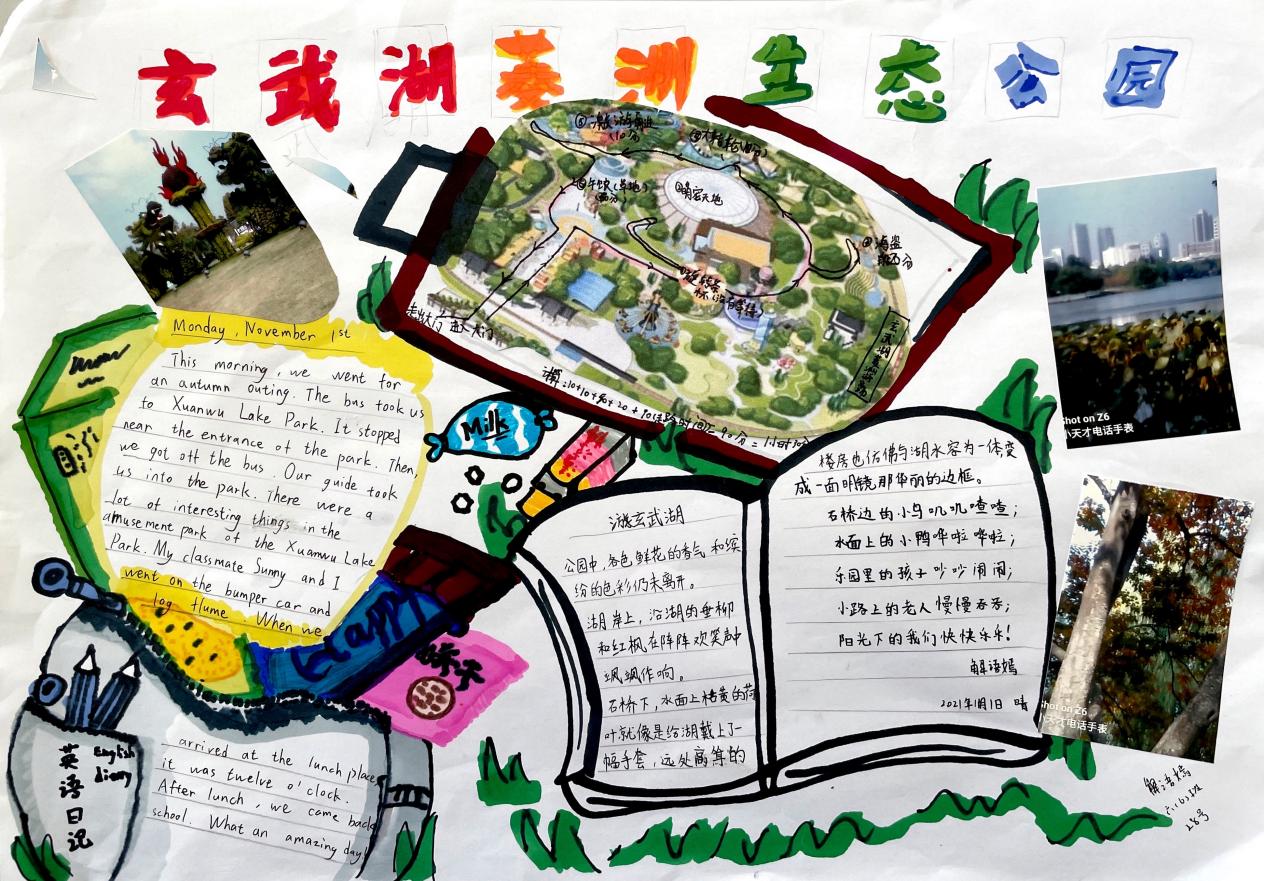 玄武湖菱洲生态公园
Monday, November 1st
This morning, we went for
an autumn outing. The bus took us
to Xuanwu Lake Park. It stopped
near the entrance of the park. Then,
we got off the bus. Our guide took
us into the park. There were a
lot of interesting things in the
amusement park of the Xuanwu Lake
Park. My classmate Sunny and I
went on the bumper car and
log flume. When we
arrived at the lunch place,
it was twelve o'clock.
After lunch, we came back
school. What an amazing day!
英语日记
English
diary
Milk
Happy
走出大门 进入大门
晴空天地
游玄武湖
公园中,各色鲜花的香气和缤
纷的色彩仍未离开。
湖岸上,沿湖的垂柳
和红枫在阵阵欢笑声中
飒飒作响。
石桥下,水面上枯黄的荷
叶就像是给湖戴上了一
幅手套,远处高耸的
楼房也仿佛与湖水容为一体变
成一面明镜那华丽的边框。
石桥边的小鸟叽叽喳喳;
水面上的小鸭哗啦哗啦;
乐园里的孩子吵吵闹闹;
小路上的老人慢慢吞吞;
阳光下的我们快快乐乐!
解语嫣
2021年11月1日 晴
shot on Z6
小天才电话手表
shot on Z6
小天才电话手表
解语嫣
28号